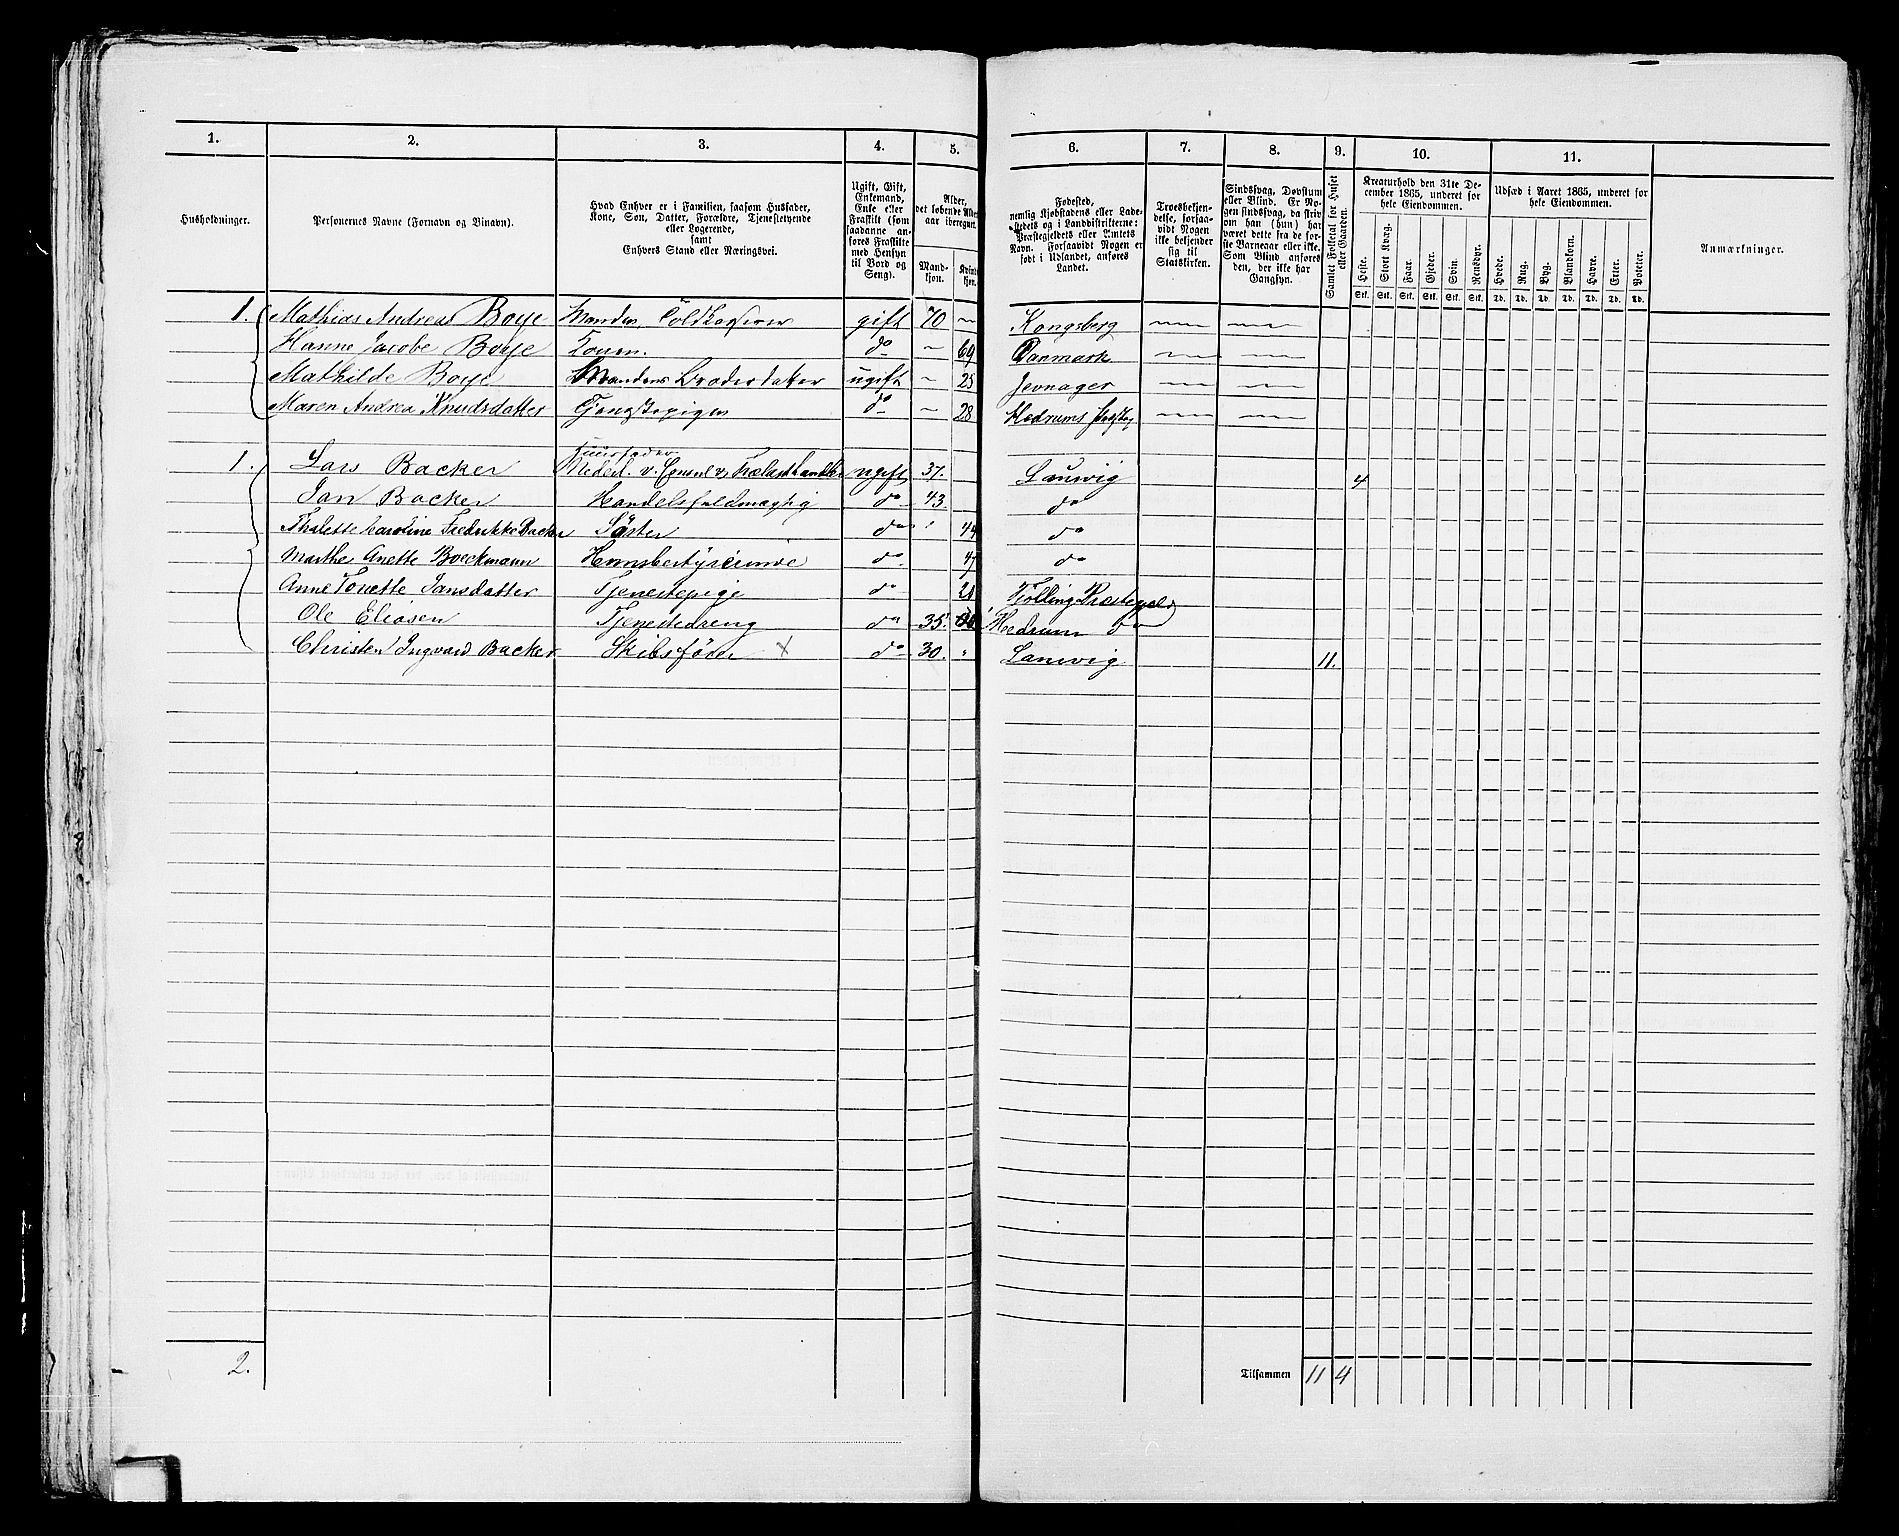 1. 2. 3. 4. 5. 6. 7. 8. 9. 10. 11.
Husholdninger.
Personernes Navne (Fornavn og Binavn).
Hvad Enhver er i Familien, saasom Husfader,
Kone, Søn, Datter, Forældre, Tjenestetyende
eller Logerende,
samt
Enhvers Stand eller Næringsvei.
Ugift, Gift,
Enkemand,
Enke eller
Fraskilt (som
saadanne an-
føres Fraskilte
med Hensyn
til Bord og
Seng).
Alder,
det løbende Alders-
aar iberegnet.
Mand-
kjøn.
Kvinde-
kjøn.
Fødested,
nemlig Kjøbstadens eller Lade-
stedets og i Landdistrikterne:
Præstegjeldets eller Amtets
Navn. Forsaavidt Nogen er
født i Udlandet, anføres
Landet.
Troesbekjen-
delse, forsaa-
vidt Nogen
ikke bekjender
sig til
Statskirken.
Sindssvag, Døvstum
eller Blind. Er No-
gen sindssvag, da skriv
om han (hun) har
været dette fra de før-
ste Barneaar eller ikke.
Som Blind anføres
den, der ikke har
Gangsyn.
Samlet Folketal for Huset
eller Gaarden.
Kreaturhold den 31te De-
cember 1865, underet for
hele Eiendommen.
Heste. Stort Kvæg. Faar. Gjeder. Svin. Rensdyr.
Stk. Stk. Stk. Stk. Stk. Stk.
Udsæd i Aaret 1865, underet for
hele Eiendommen.
Hvede. Rug. Byg. Blandkorn. Havre. Erter. Poteter.
Td. Td. Td. Td. Td. Td. Td.
Anmærkninger.
1. Mathias Andreas Boye Manden, Toldkasserer gift 70 Kongsberg
Hanne Jacobe Boye Konen. do 69 Danmark
Mathilde Boye Mandens Broderdatter ugift 25 Jevnager
Maren Andrea Knudsdatter do 28 Hedrums
Huusfader
1. Lars Backer v. Consul v. Trælasthandler ugift 37. Laurvig 4
Jan Backer Handelsfuldmægtig do 43 do
Thalette Karoline Fredrikke Backer Söster do 44 do
Marthe Anette Boeckmann do do
Anne Tonette Jansdatter Tjenestepige do Tjölling Præstegjeld
Ole Eliasen Tjenestedreng do 35. Hedrum do
Christen Ingvard Backer Skibsförer x do 30. Laurvig 11.
2.
Tilsammen 11 4